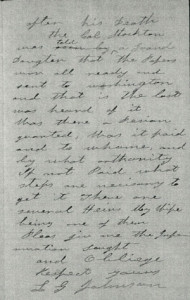 after his Death
the Col Mockton
was told by a Friend
Daughter that the Papers
wer all ready and
sent to Washington
and that is the last
was heard of it
Was there a Pension
granted, Was it paid
and to whome, and
by what authority
If not Paid, what
steps are necissary to
get it There are
several Heirs My Wife
being one of them
Pleas give me the Infor
mation sought
and Obliege
Respect yours
L G Johnson